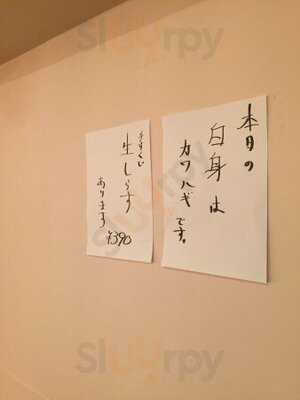 本日の
白身は
カワハギです。
手すくい
生しらす
あります
¥390
Sluurpy
Sluurpy
Sluurpy